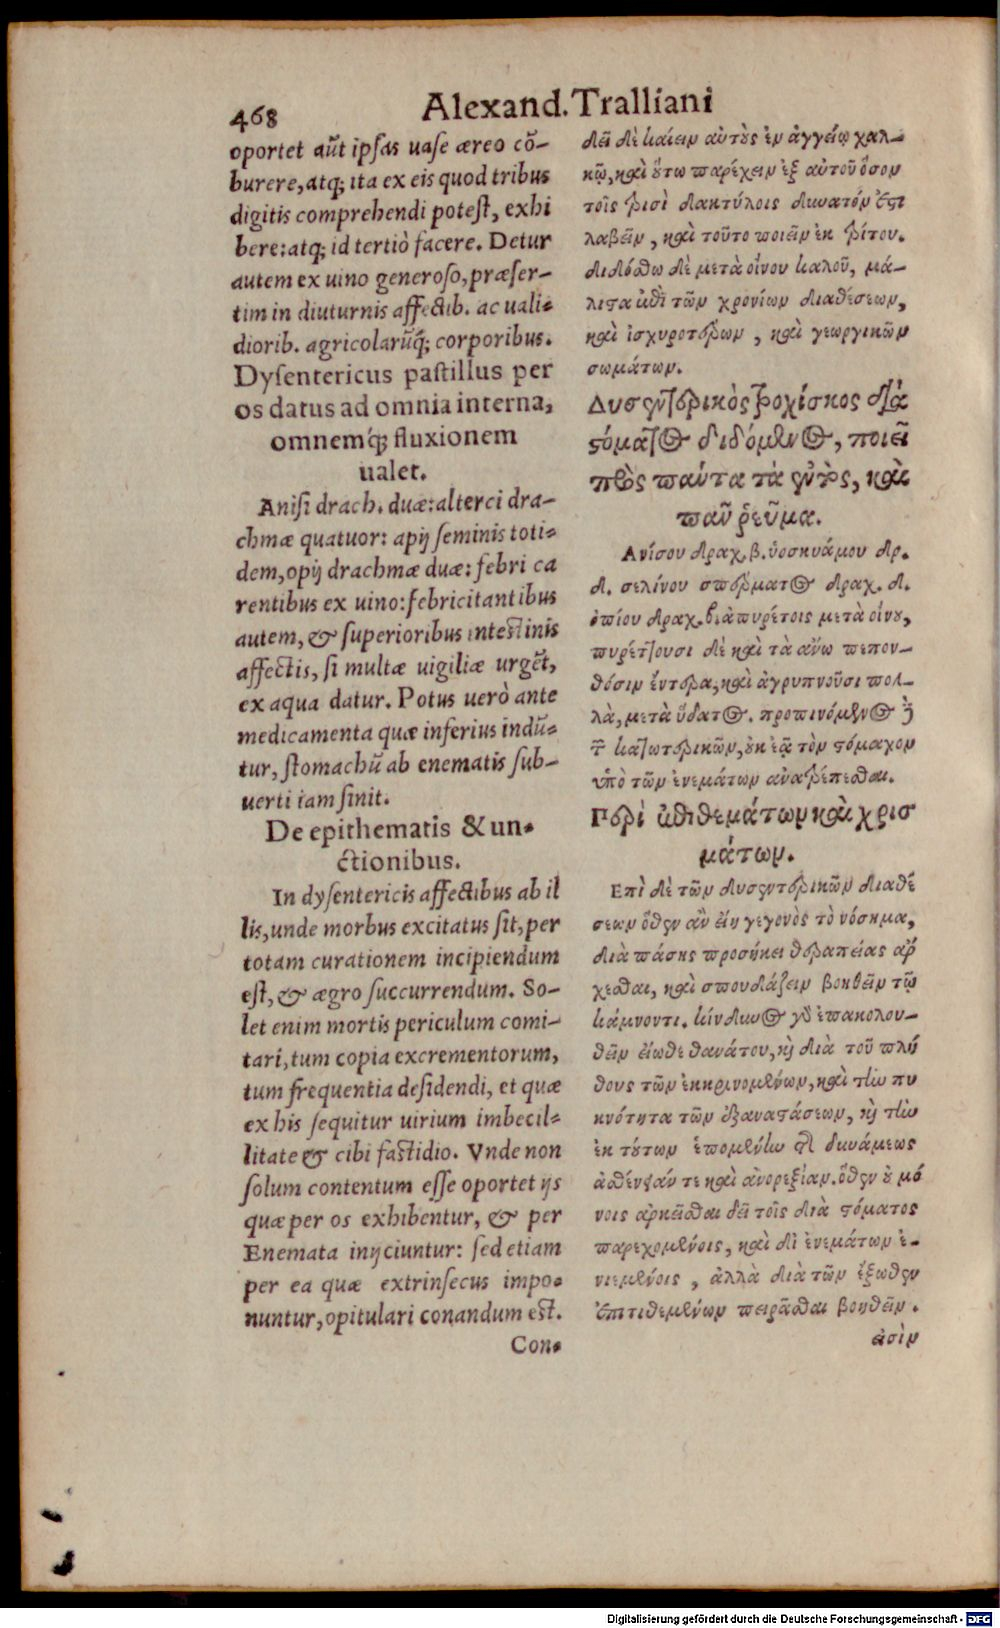 468
Alexand. Tralliani
oportet aūt ipſas uaſe æreo cō-
burere, atq; ita ex eis quod tribus
digitis comprehendi poteſt, exhi
bere: atq; id tertiò facere. Detur
autem ex uino generoſo, præſer-
tim in diuturnis affectib. ac uali-
diorib. agricolarūq́; corporibus.
Dyſentericus paſtillus per
os datus ad omnia interna,
omnemq́; fluxionem
ualet.
Aniſi drach. duæ: alterci dra-
chmæ quatuor: apij ſeminis toti-
dem, opij drachmæ duæ: febri ca
rentibus ex uino: febricitantibus
autem, & ſuperioribus inteſtinis
affectis, ſi multæ uigiliæ urgēt,
ex aqua datur. Potus uerò ante
medicamenta quæ inferius indū-
tur, ſtomachū ab enematis ſub-
uerti iam ſinit.
De epithematis & un-
ctionibus.
In dyſentericis affectibus ab il
lis, unde morbus excitatus ſit, per
totam curationem incipiendum
eſt, & ægro ſuccurrendum. So-
let enim mortis periculum comi-
tari, tum copia excrementorum,
tum frequentia deſidendi, et quæ
ex his ſequitur uirium imbecil-
litate & cibi faſtidio. Vnde non
ſolum contentum eſſe oportet ijs
quæ per os exhibentur, & per
Enemata inijciuntur: ſed etiam
per ea quæ extrinſecus impo-
nuntur, opitulari conandum eſt.
Con-
δεῖ δὲ καίειν αὐτοὺς ἐν ἀγγείῳ χαλ-
κῷ, καὶ οὕτω παρέχειν ἐξ αὐτοῦ ὅσον
τοῖς τρισὶ δακτύλοις δυνατόν ἐστι
λαβεῖν, καὶ τοῦτο ποιεῖν ἐκ τρίτου.
διδόσθω δὲ μετὰ οἴνου καλοῦ, μά-
λιστα ἐπὶ τῶν χρονίων διαθέσεων,
καὶ ἰσχυροτέρων, καὶ γεωργικῶν
σωμάτων.
Δυσεντερικὸς τροχίσκος διὰ
στόματος διδόμενος, ποιεῖ
πρὸς πάντα τὰ ἐντὸς, καὶ
πᾶν ῥεῦμα.
Ανίσου δραχ. β. ὑοσκυάμου δρ.
δ. σελίνου σπέρματος δραχ. δ.
ὀπίου δραχ. β. ἀπυρέτοις μετὰ οἴνου,
πυρέττουσι δὲ καὶ τὰ ἄνω πεπον-
θόσιν ἔντερα, καὶ ἀγρυπνοῦσι πολ-
λὰ, μετὰ ὕδατος. προπινόμενος δὲ
τῶν κατωτερικῶν, οὐκ ἐᾷ τὸν στόμαχον
ὑπὸ τῶν ἐνεμάτων ἀνατρέπεσθαι.
Περὶ ἐπιθεμάτων καὶ χρισ
μάτων.
Επὶ δὲ τῶν δυσεντερικῶν διαθέ
σεων ὅθεν ἂν εἴη γεγονὸς τὸ νόσημα,
διὰ πάσης προσήκει θεραπείας ἄρ
χεσθαι, καὶ σπουδάζειν βοηθεῖν τῷ
κάμνοντι. κίνδυνος γὰρ ἐπακολου-
θεῖν εἴωθε θανάτου, καὶ διὰ τοῦ πλή
θους τῶν ἐκκρινομένων, καὶ τὴν πυ
κνότητα τῶν ἐξαναστάσεων, καὶ τὴν
ἐκ τούτων ἑπομένην τῆς δυνάμεως
ἀσθένειάν τε καὶ ἀνορεξίαν. ὅθεν οὐ μό
νοις ἀρκεῖσθαι δεῖ τοῖς διὰ στόματος
παρεχομένοις, καὶ δι' ἐνεμάτων ἐ-
νιεμένοις, ἀλλὰ διὰ τῶν ἔξωθεν
ἐπιτιθεμένων πειρᾶσθαι βοηθεῖν.
εἰσὶν
Digitalisierung gefördert durch die Deutsche Forschungsgemeinschaft - DFG